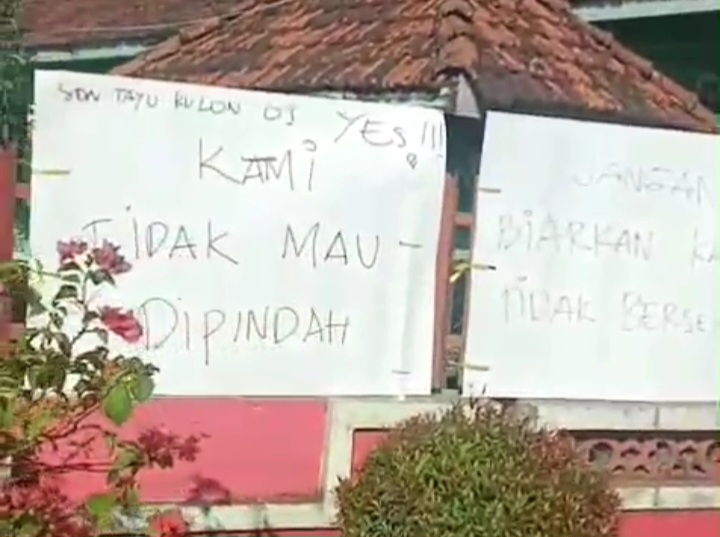 SDN TAYU KULON 03 YES!!!
KAMI
TIDAK MAU
DIPINDAH
JANGAN
BIARKAN
TIDAK